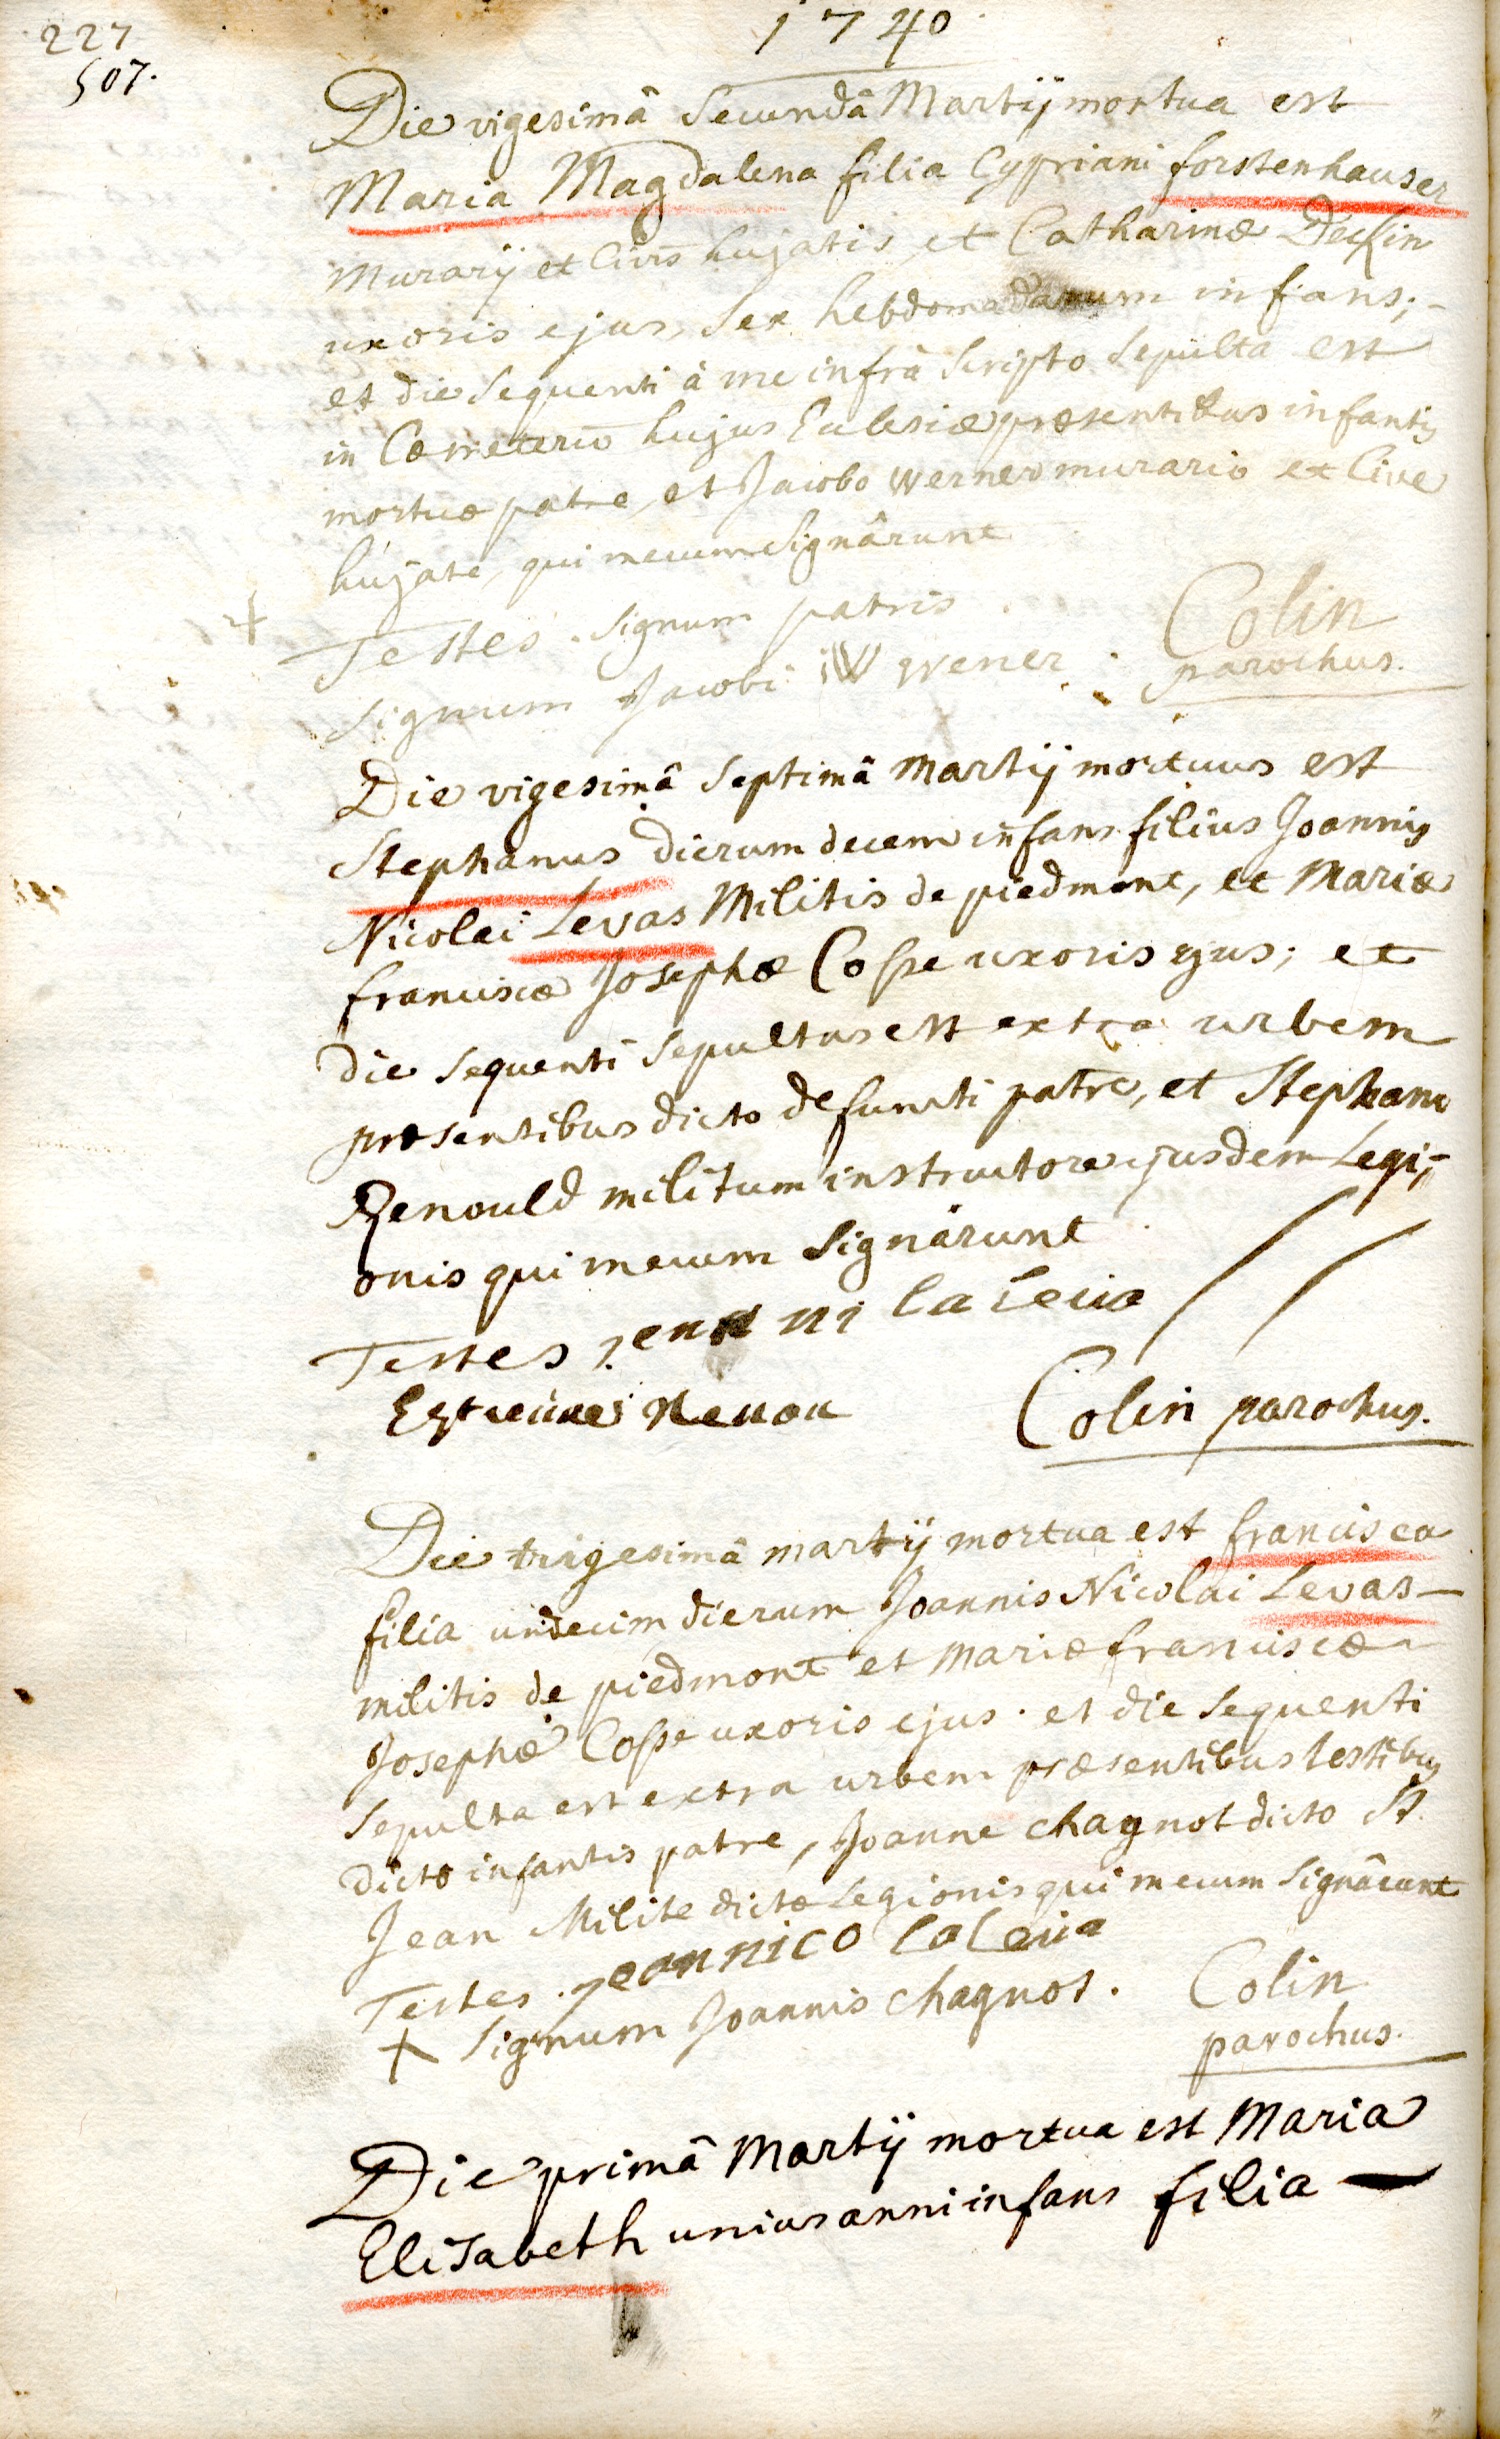 227
507.
1740
Die vigesimâ Secundâ Martij mortua est
Maria Magdalena filia Cypriani forstenhauser
Murarij et Civis hujatis, et Catharinæ Deckin
uxoris ejus, Sex hebdomadarum infans;
et die Sequenti â me infrà Scripto Sepulta est
in Cœmeterio hujus Eclesiæ præsentibus infantis
mortuæ patre, et Jacobo Werner murario et Cive
hujate, qui mecum Signârunt
Testes. Signum patris
Signum Jacobi IW Wener. Colin
parochus.
Die vigesimâ Septimâ Martij mortuus est
Stephanus dierum decem infans filius Joannis
Nicolai Levas Militis de piedmont, et Mariæ
franciscæ Josephæ Cosse uxoris ejus; et
die sequenti Sepultus est extra urbem
præsentibus dicto defuncti patre, et Stephano
Renould militum instructore ejusdem Legi-
onis qui mecum Signârunt
Testes jean ni la leva
Estieine Renou Colin parochus.
Die trigesimâ martij mortua est francisca
filia undecim dierum Joannis Nicolai Levas
militis de piedmont et Mariæ franciscæ
Josephæ Cosse uxoris ejus. et die Sequenti
Sepulta est extra urbem præsentibus testibus
dicto infantis patre, Joanne chagnot dicto St.
Jean Milite dictæ Legionis qui mecum Signârunt
Testes. jean nico la leva
+ Signum Joannis chagnot. Colin
parochus.
Die primâ Martij mortua est Maria
Elisabeth unius anni infans filia